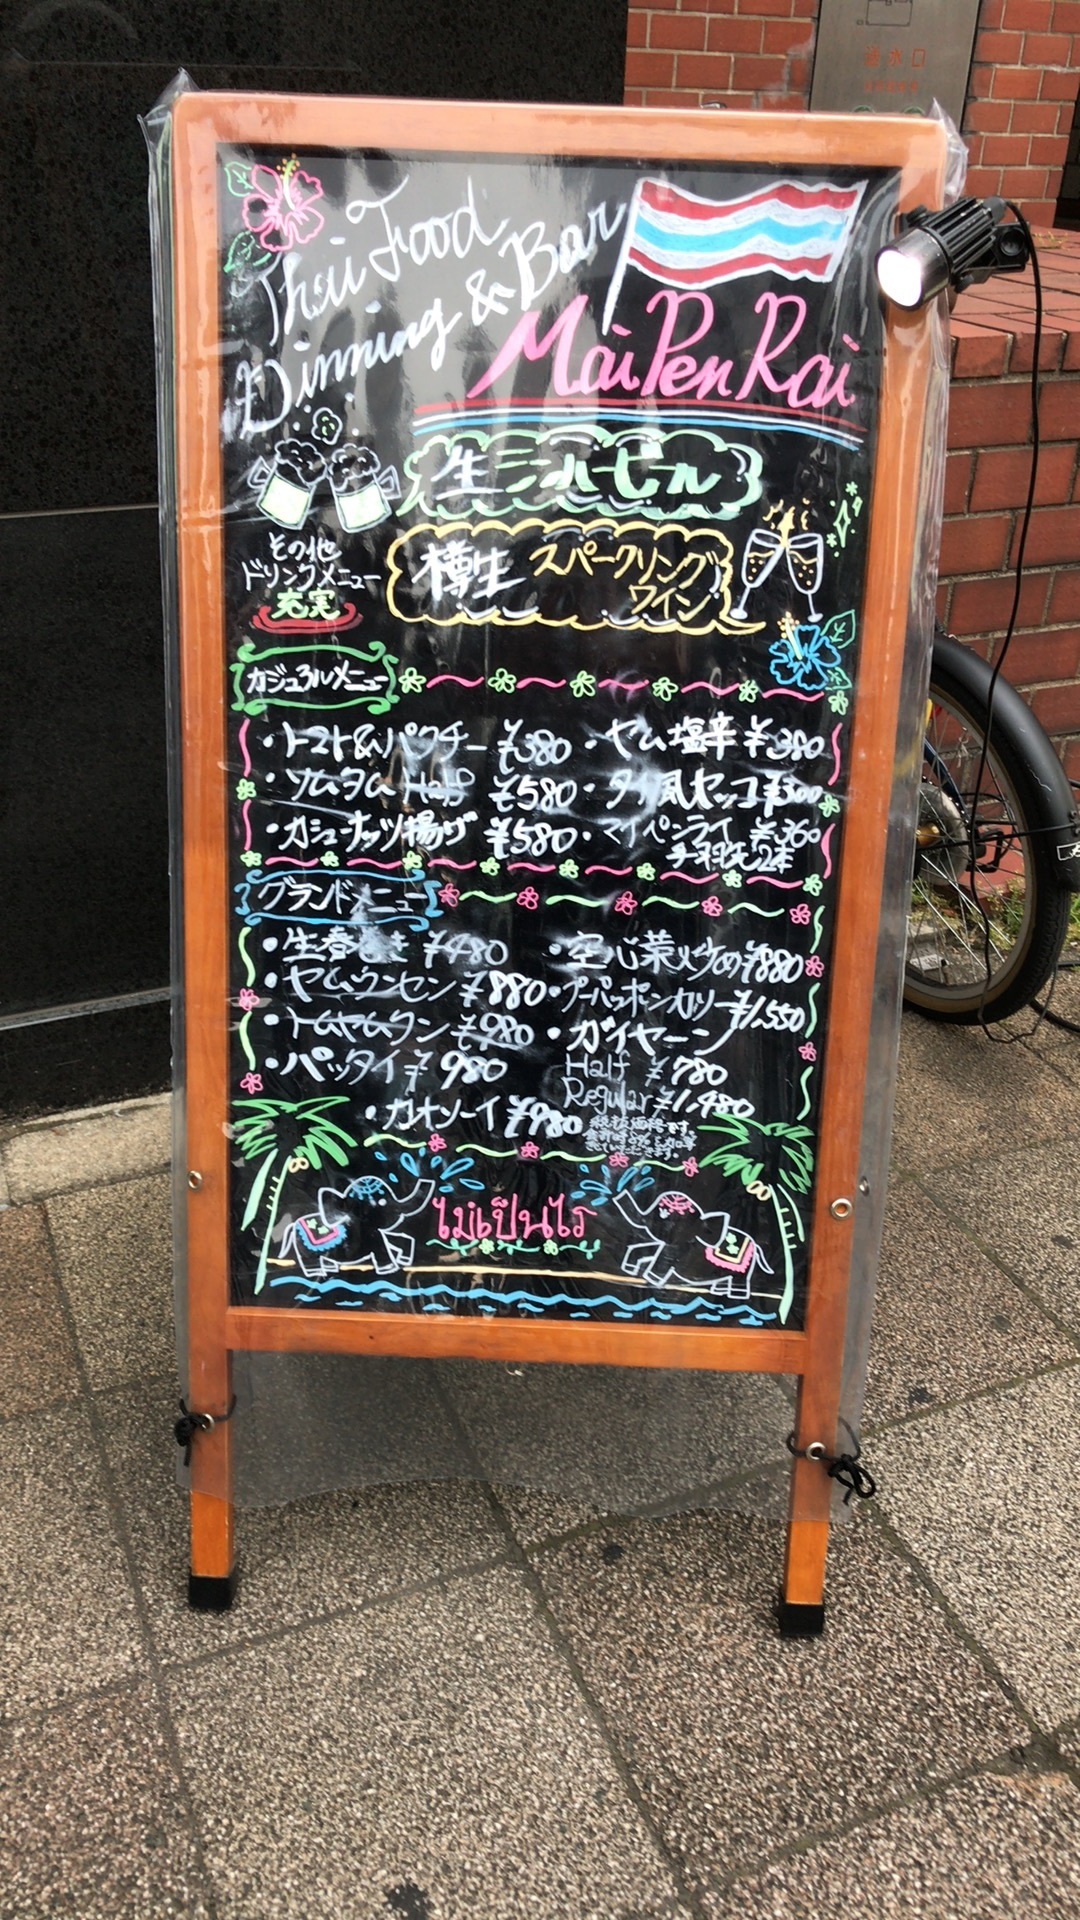 Thai Food
Dinning & Bar
Mai Pen Rai
生
その他
ドリンクメニュー
充実
樽生 スパークリング
ワイン
カジュアルメニュー
・トマト&パクチー ¥380
・ヤム塩辛 ¥380
・ソムタム Half ¥580
・タイ風セッコ ¥300
・カシューナッツ揚げ ¥580
・マイペンライ ¥360
手羽先2本
グランドメニュー
・生春巻き ¥480
・空心菜炒め ¥880
・ヤムウンセン ¥880
・プーパッポンカリー ¥1,550
・トムヤムクン ¥980
・ガイヤーン
・パッタイ ¥980
Half ¥780
Regular ¥1,480
・カオソーイ ¥980
税抜価格です。
ไม่เป็นไร